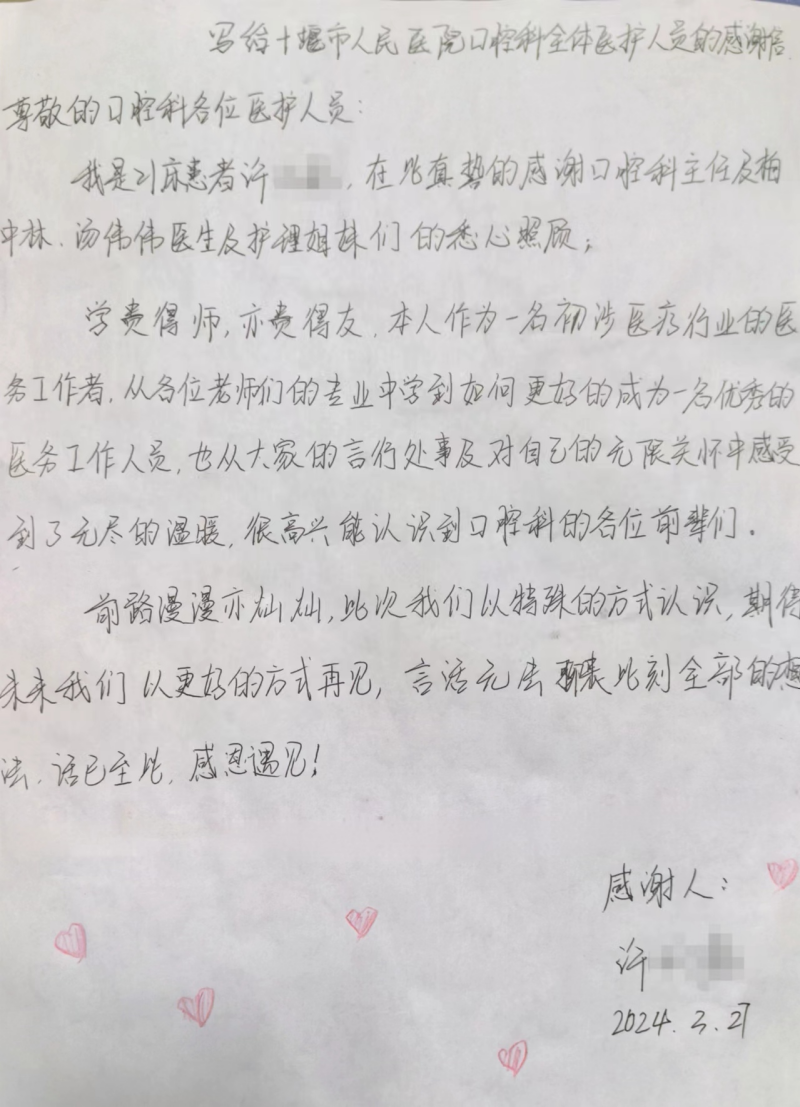 写给十堰市人民医院口腔科全体医护人员的感谢信
尊敬的口腔科各位医护人员：
我是21床患者许，在此真挚的感谢口腔科主任及柏
中林、汤伟伟医生及护理姐妹们的悉心照顾；
学贵得师，亦贵得友，本人作为一名初涉医疗行业的医
务工作者，从各位老师们的专业中学到如何更好的成为一名优秀的
医务工作人员，也从大家的言行处事及对自己的无限关怀中感受
到了无尽的温暖，很高兴能认识到口腔科的各位前辈们。
前路漫漫亦灿灿，此次我们以特殊的方式认识，期待
未来我们以更好的方式再见，言语无法表此刻全部的想
法，话已至此，感恩遇见！
感谢人：
许
2024.3.27